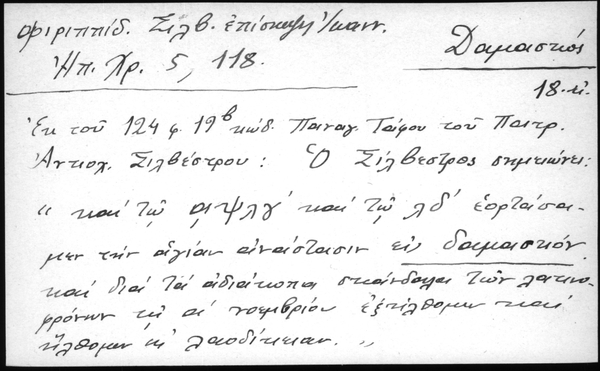 Φιριππίδ. Σιλβ. ἐπίσκεψη Ἰωανν.
Ἠπ. Χρ. 5, 118.
Δαμασκός
18. αἰ.
Ἐκ τοῦ 124 φ. 19β κώδ. Παναγ. Τάφου τοῦ Πατρ.
Ἀντιοχ. Σιλβέστρου: Ὁ Σίλβεστρος σημειώνει:
"καί τῷ ͵αψλγ' καί τῷ λδ' ἑορτάσα-
μεν τήν ἁγίαν ἀνάστασιν εἰς δαμασκόν.
καί διά τά ἀδιάκοπα σκάνδαλα τῶν λατινο-
φρόνων τῇ αῃ νοεμβρίου ἐξήλθομεν καί
ἤλθομεν εἰς λαοδίκειαν."